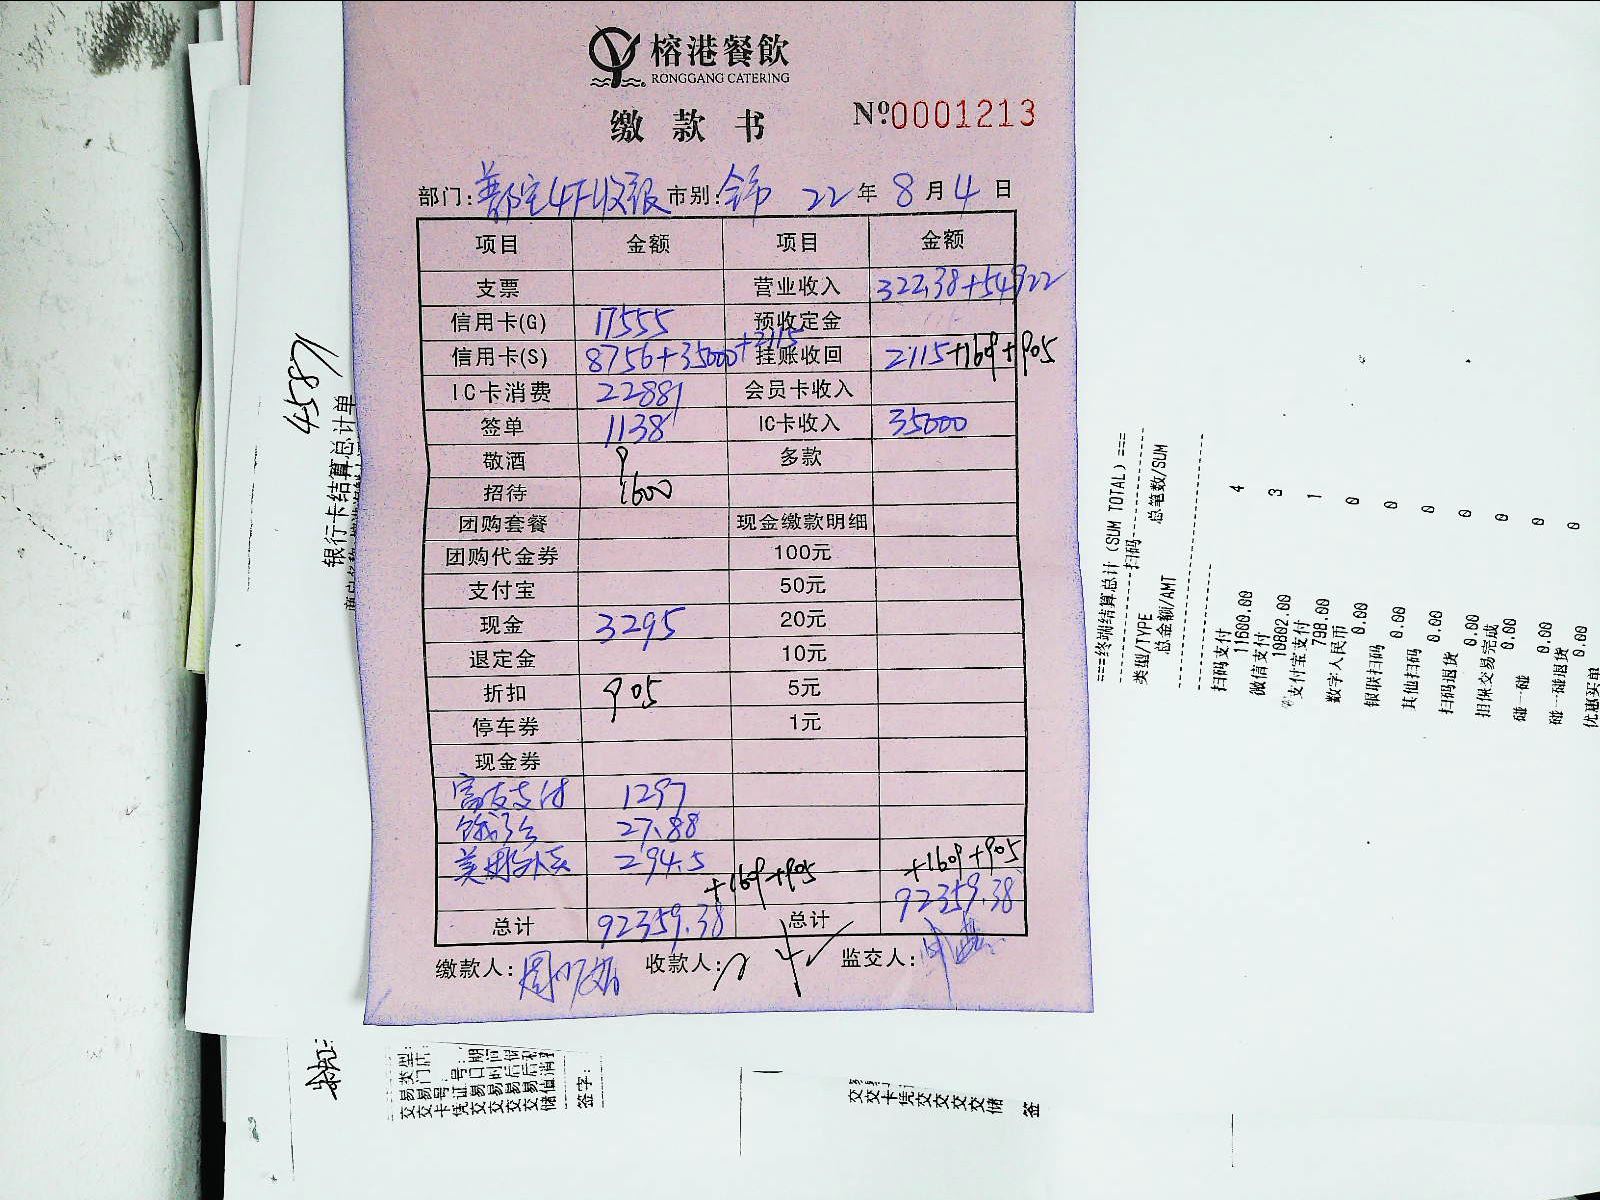 榕港餐飲
RONGGANG CATERING
缴款书
Nº:0001213
部门: 4F收银 市别:全市 22年8月4日
项目 金额 项目 金额
支票 营业收入 322.38+54922
信用卡(G) 17555 预收定金
信用卡(S) 8756+35000+2115 挂账收回 2115+169+905
IC卡消费 22881 会员卡收入
签单 1138 IC卡收入 35000
敬酒 9 多款
招待 1600
团购套餐 现金缴款明细
团购代金券 100元
支付宝 50元
现金 3295 20元
退定金 10元
折扣 905 5元
停车券 1元
现金券
富友支付 1297
饿了么 27.88
美团外卖 294.5
+1609+905 +1609+905
总计 92359.38 总计 92359.38
缴款人: 收款人: 监交人:
45871
银行卡结算总计单
===终端结算总计(SUM TOTAL)===
扫码
类型/TYPE 总笔数/SUM
总金额/AMT
扫码支付 4
11600.00
微信支付 3
10802.00
支付宝支付 1
798.00
数字人民币 0
0.00
银联扫码 0
0.00
其他扫码 0
0.00
扫码退货 0
0.00
担保交易完成 0
0.00
碰一碰 0
0.00
碰一碰退货 0
0.00
优惠买单
交易类型:
交易门店:
卡号:
凭证号:
交易日期
交易时间
交易后
交易后
储值消费
签字:
交
交
卡
凭
交
交
交
交
储
签